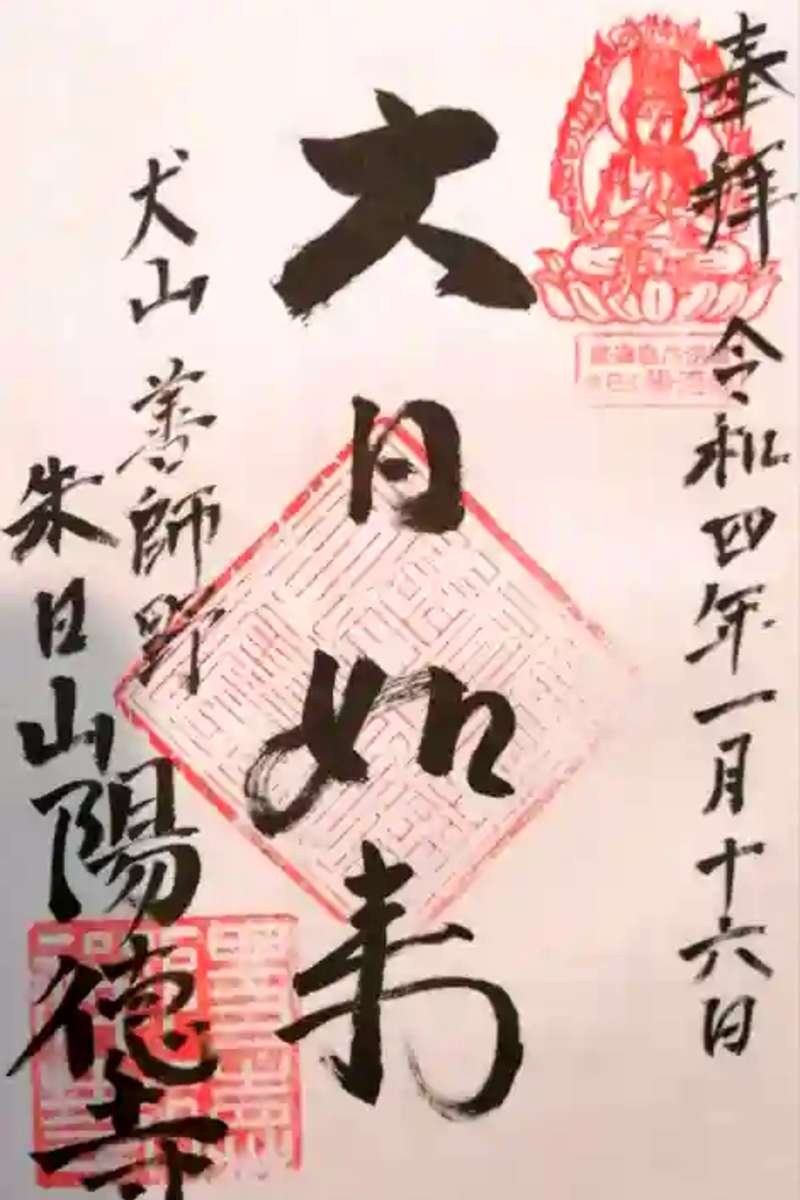 奉拝 令和四年一月十六日
大日如来
犬山 善師野
朱日山陽徳寺